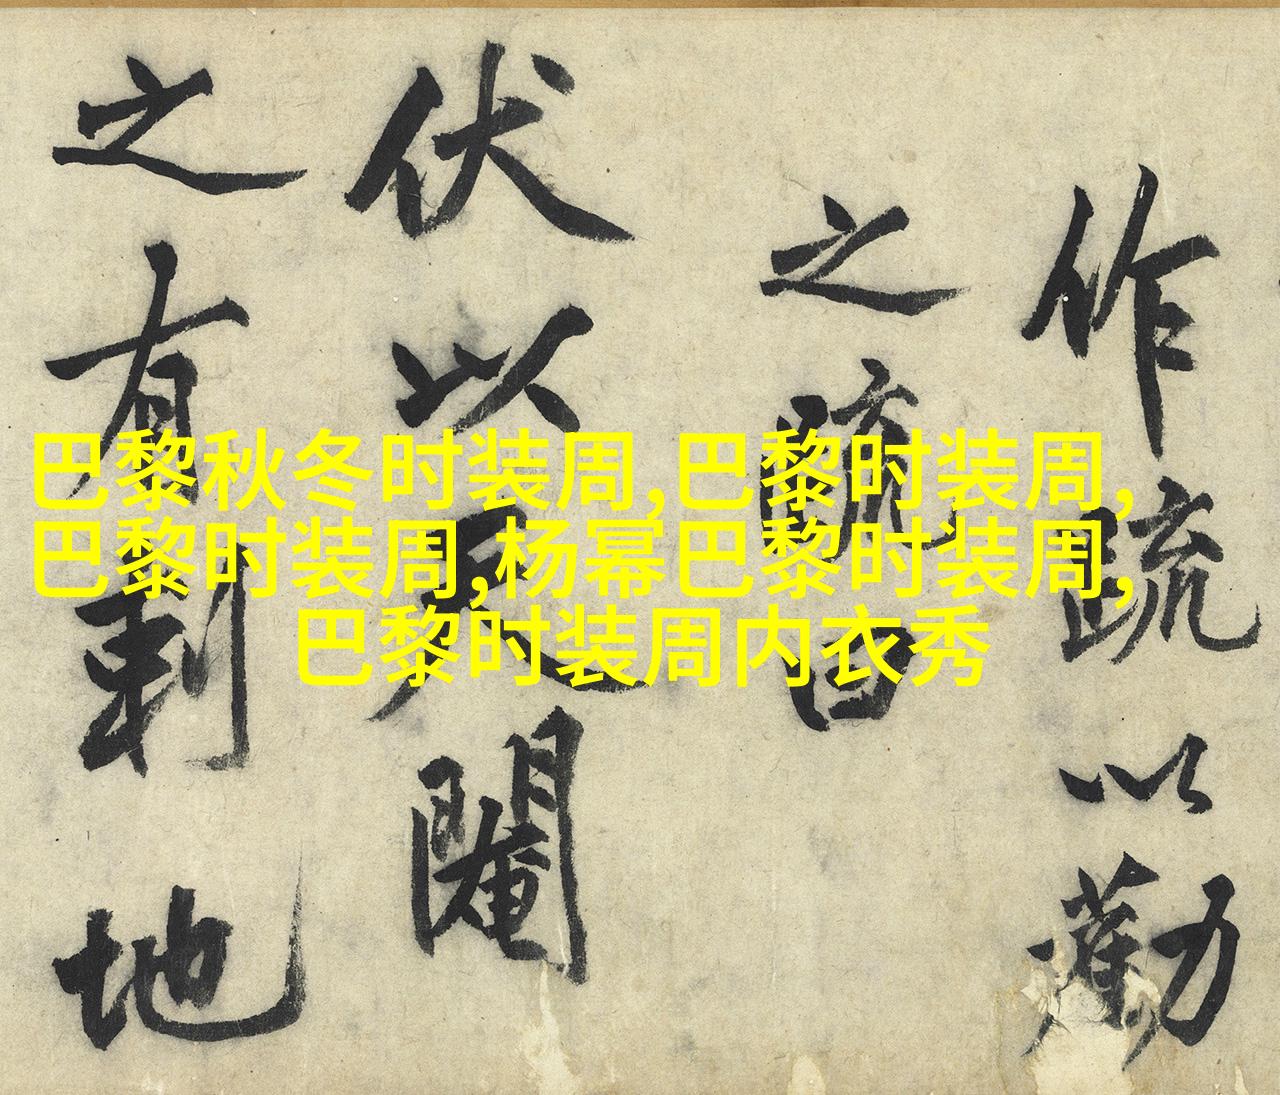 巴黎秋冬时装周,巴黎时装周,
巴黎时装周,杨幂巴黎时装周,
巴黎时装周内衣秀
作疏以勸
之疏曰
伏以閹
之有剩地